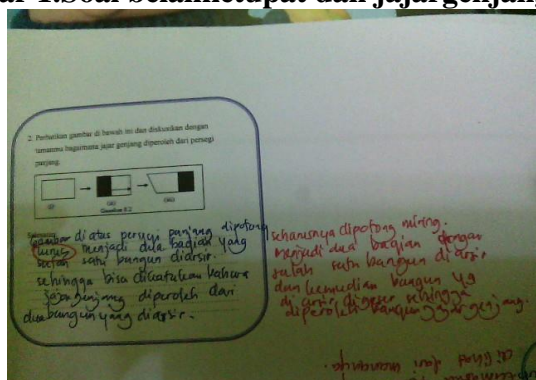 2. Perhatikan gambar di bawah ini dan diskusikan dengan
temanmu bagaimana jajar genjang diperoleh dari persegi
panjang.
(i)
(ii)
(iii)
Gambar 8.2
Gambar di atas persegi panjang dipotong
lurus menjadi dua bagian yang
salah satu bangun diarsir.
sehingga bisa dikatakan bahwa
jajargenjang diperoleh dari
dua bangun yang diarsir.
seharusnya dipotong miring.
menjadi dua bagian dengan
salah satu bangun di arsir
dan kemudian bangun yg
di arsir digeser sehingga
diperoleh bangun jajargenjang.